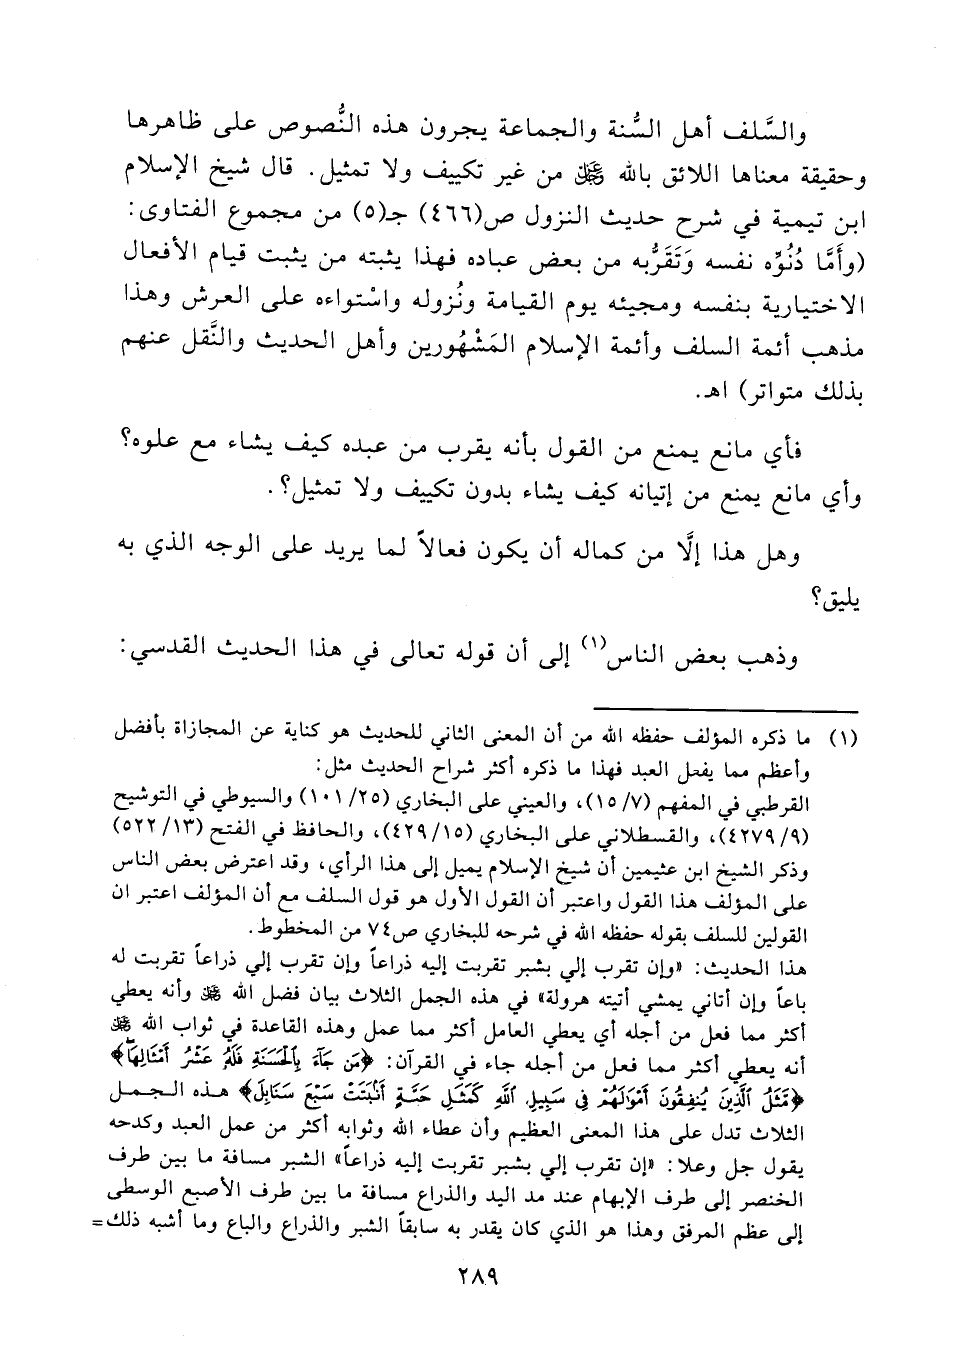 والسَّلف أهل السُّنة والجماعة يجرون هذه النُّصوص على ظاهرها
وحقيقة معناها اللائق بالله ﷿ من غير تكييف ولا تمثيل. قال شيخ الإسلام
ابن تيمية في شرح حديث النزول ص(٤٦٦) جـ(٥) من مجموع الفتاوى:
(وأَمَّا دُنُوِّه نفسه وَتَقَرُّبه من بعض عباده فهذا يثبته من يثبت قيام الأفعال
الاختيارية بنفسه ومجيئه يوم القيامة ونُزوله واسْتواءه على العرش وهذا
مذهب أئمة السلف وأئمة الإسلام المَشْهُورين وأهل الحديث والنَّقل عنهم
بذلك متواتر) اهـ.
فأي مانع يمنع من القول بأنه يقرب من عبده كيف يشاء مع علوه؟
وأي مانع يمنع من إتيانه كيف يشاء بدون تكييف ولا تمثيل؟.
وهل هذا إلَّا من كماله أن يكون فعالاً لما يريد على الوجه الذي به
يليق؟
وذهب بعض الناس(١) إلى أن قوله تعالى في هذا الحديث القدسي:
(١) ما ذكره المؤلف حفظه الله من أن المعنى الثاني للحديث هو كناية عن المجازاة بأفضل
وأعظم مما يفعل العبد فهذا ما ذكره أكثر شراح الحديث مثل:
القرطبي في المفهم (١٥/٧)، والعيني على البخاري (١٠١/٢٥) والسيوطي في التوشيح
(٤٢٧٩/٩)، والقسطلاني على البخاري (٤٢٩/١٥)، والحافظ في الفتح (٥٢٢/١٣)
وذكر الشيخ ابن عثيمين أن شيخ الإسلام يميل إلى هذا الرأي، وقد اعترض بعض الناس
على المؤلف هذا القول واعتبر أن القول الأول هو قول السلف مع أن المؤلف اعتبر ان
القولين للسلف بقوله حفظه الله في شرحه للبخاري ص٧٤ من المخطوط.
هذا الحديث: «وإن تقرب إلي بشبر تقربت إليه ذراعاً وإن تقرب إلي ذراعاً تقربت له
باعاً وإن أتاني يمشي أتيته هرولة» في هذه الجمل الثلاث بيان فضل الله ﷿ وأنه يعطي
أكثر مما فعل من أجله أي يعطي العامل أكثر مما عمل وهذه القاعدة في ثواب الله ﷿
أنه يعطي أكثر مما فعل من أجله جاء في القرآن: ﴿مَن جَآءَ بِٱلْحَسَنَةِ فَلَهُۥ عَشْرُ أَمْثَالِهَا﴾
﴿مَّثَلُ ٱلَّذِينَ يُنفِقُونَ أَمْوَٰلَهُمْ فِى سَبِيلِ ٱللَّهِ كَمَثَلِ حَبَّةٍ أَنۢبَتَتْ سَبْعَ سَنَابِلَ﴾ هذه الجمل
الثلاث تدل على هذا المعنى العظيم وأن عطاء الله وثوابه أكثر من عمل العبد وكدحه
يقول جل وعلا: «إن تقرب إلي بشبر تقربت إليه ذراعاً» الشبر مسافة ما بين طرف
الخنصر إلى طرف الإبهام عند مد اليد والذراع مسافة ما بين طرف الأصبع الوسطى
إلى عظم المرفق وهذا هو الذي كان يقدر به سابقاً الشبر والذراع والباع وما أشبه ذلك=
٢٨٩